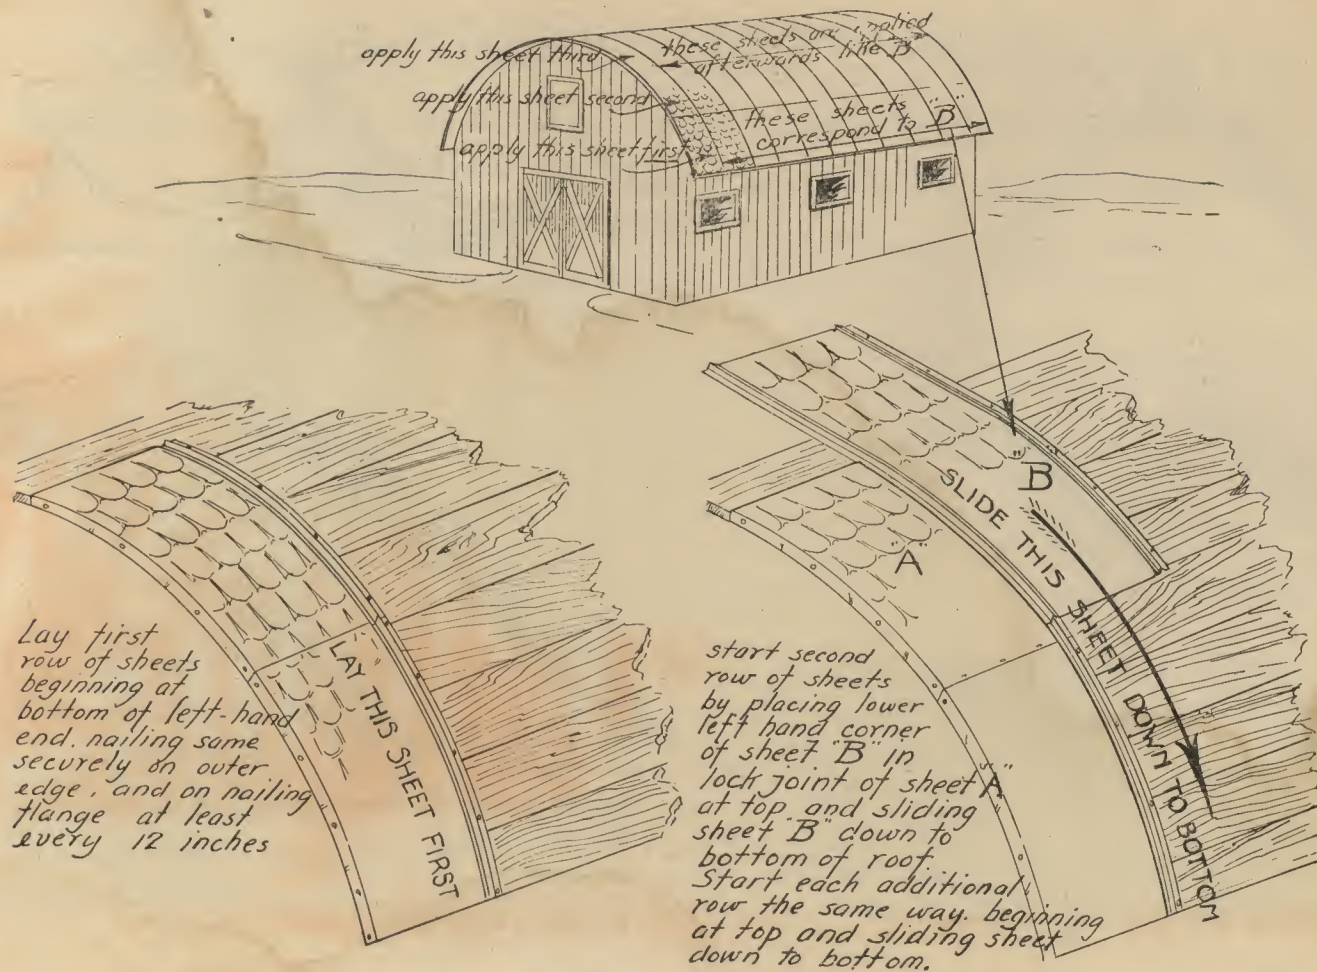 apply this sheet third
these sheets are applied
afterwards like "B"
apply this sheet second
these sheets
correspond to "B"
apply this sheet first
"B"
SLIDE THIS SHEET DOWN TO BOTTOM
"A"
"LAY" THIS SHEET FIRST
Lay first
row of sheets
beginning at
bottom of left-hand
end. nailing same
securely on outer
edge, and on nailing
flange at least
every 12 inches
start second
row of sheets
by placing lower
left hand corner
of sheet "B" in
lock joint of sheet "A"
at top and sliding
sheet "B" down to
bottom of roof.
Start each additional
row the same way. beginning
at top and sliding sheet
down to bottom.